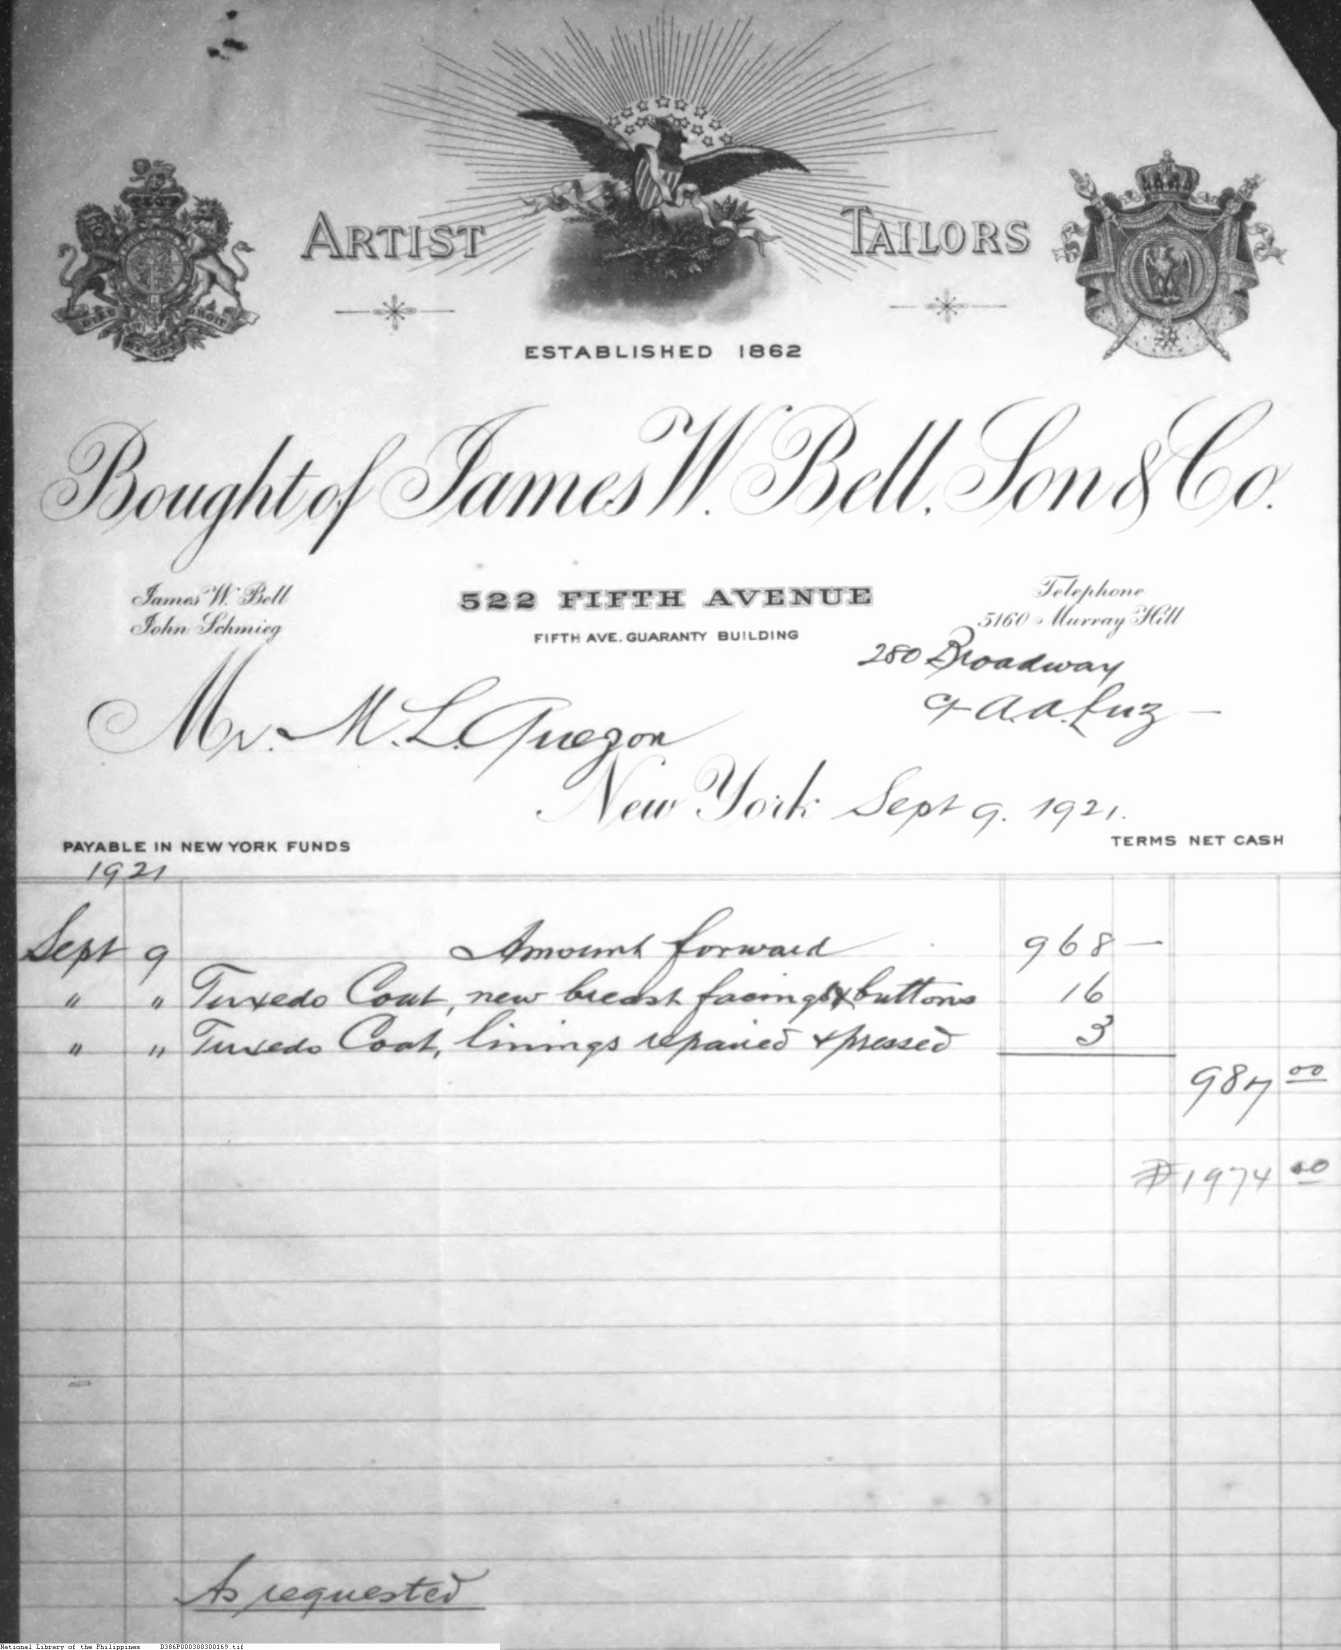 ARTIST TAILORS
ESTABLISHED 1862
Bought of James W. Bell, Son & Co.
James W. Bell
John Schmieg
522 FIFTH AVENUE
FIFTH AVE. GUARANTY BUILDING
Telephone
5160 Murray Hill
280 Broadway
A.A. Luz —
Mr. M. L. Quezon
New York Sept 9. 1921.
PAYABLE IN NEW YORK FUNDS
TERMS NET CASH
1921
Sept 9 Amount forward 968 —
" " Tuxedo Coat, new breast facings & buttons 16
" " Tuxedo Coat, linings repaired & pressed 3
987 00
₱1974 00
As requested
National Library of the Philippines D386P000300300169.tif